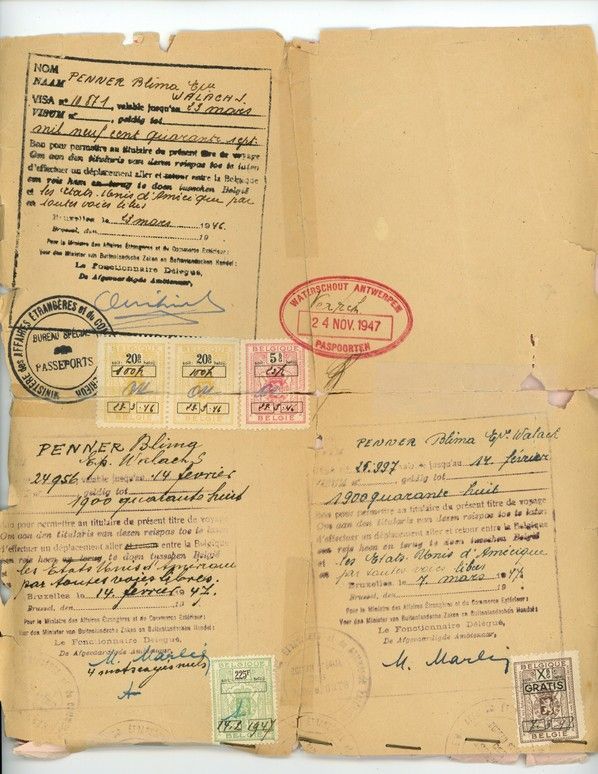 NOM
NAAM PENNER Blima Epse
WALACH S.
VISA nº 10871, valable jusqu'au 23 mars
VISUM nº geldig tot
mil neuf cent quarante sept
Bon pour permettre au titulaire du présent titre de voyage
Om aan den titularis van dezen reispas toe te laten
d'effectuer un déplacement aller et retour entre la Belgique
een reis heen en terug te doen tusschen België
et les Etats-Unis d'Amérique par
en toutes voies libres
Bruxelles le 23 mars 1946.
Brussel, den 19
Pour le Ministre des Affaires Étrangères et du Commerce Extérieur:
Voor den Minister van Buitenlandsche Zaken en Buitenlandschen Handel:
Le Fonctionnaire Délégué,
De Afgevaardigde Ambtenaar,
MINISTÈRE des AFFAIRES ÉTRANGÈRES et du COMMERCE EXTÉRIEUR
BUREAU SPÉCIAL
PASSEPORTS
WATERSCHOUT ANTWERPEN
24 NOV. 1947
PASPOORTEN
20F
100f
BELGIE
20F
100f
BELGIE
BELGIQUE
5F
BELGIE
PENNER Blima
Ep. Walach S
24956 valable jusqu'au 14 février
geldig tot
1900 quarante huit
Bon pour permettre au titulaire du présent titre de voyage
Om aan den titularis van dezen reispas toe te laten
d'effectuer un déplacement aller et retour entre la Belgique
een reis heen en terug te doen tusschen België
et les Etats Unis d'Amérique
par toutes voies libres.
Bruxelles le 14 février 1947.
Brussel, den 19
Pour le Ministre des Affaires Étrangères et du Commerce Extérieur:
Voor den Minister van Buitenlandsche Zaken en Buitenlandschen Handel:
Le Fonctionnaire Délégué,
De Afgevaardigde Ambtenaar,
4 mots rayés nuls
BELGIQUE
225F
BELGIE
PENNER Blima Epse Walach
25.997 valable jusqu'au 14 février
geldig tot
1900 quarante huit
Bon pour permettre au titulaire du présent titre de voyage
Om aan den titularis van dezen reispas toe te laten
d'effectuer un déplacement aller et retour entre la Belgique
een reis heen en terug te doen tusschen België
et les Etats Unis d'Amérique
par toutes voies libres
Bruxelles le 7 mars 1947.
Brussel, den 19
Pour le Ministre des Affaires Étrangères et du Commerce Extérieur:
Voor den Minister van Buitenlandsche Zaken en Buitenlandschen Handel:
Le Fonctionnaire Délégué,
De Afgevaardigde Ambtenaar,
BELGIQUE
GRATIS
BELGIE